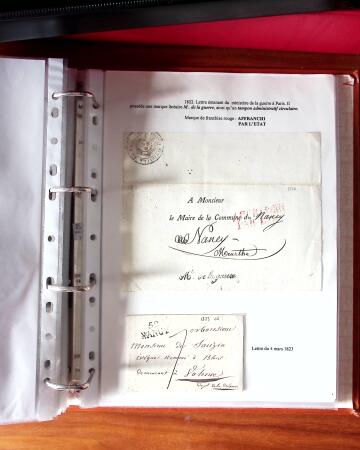 1822. Lettre émanant du ministère de la guerre à Paris. Il
possède une marque linéaire M. de la guerre, ainsi qu'un tampon administratif circulaire.
Marque de franchise rouge : AFFRANCHI
PAR L'ETAT
A Monsieur
le Maire de la Commune de Nancy
Nancy
Meurthe
M. de la guerre
NANCY
Monsieur
Monsieur De Sauzin
Évêque nommé à Blois
demeurant à
Lettre du 4 mars 1823